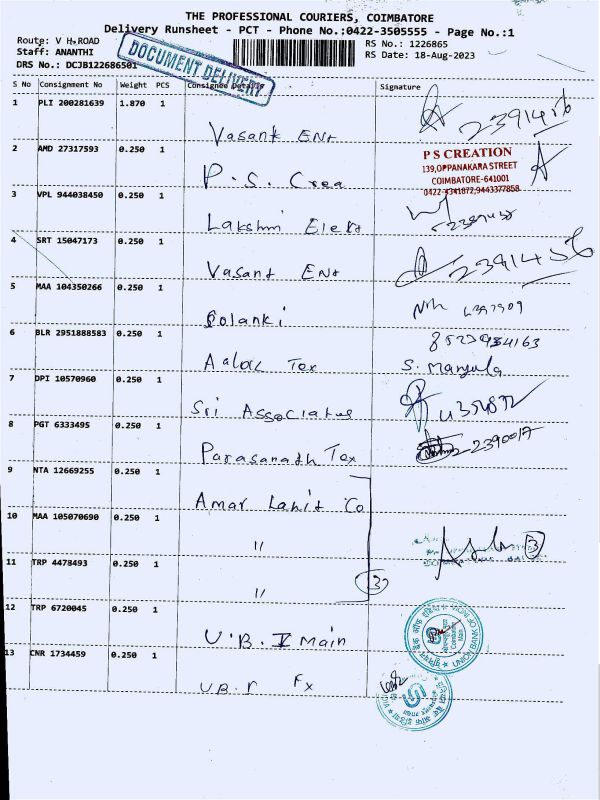 THE PROFESSIONAL COURIERS, COIMBATORE
Delivery Runsheet - PCT - Phone No.:0422-3505555 - Page No.:1
Route: V H.ROAD
RS No.: 1226865
Staff: ANANTHI
RS Date: 18-Aug-2023
DRS No.: DCJB122686501
DOCUMENT DELIVERY
S No Consignment No Weight PCS Consignee Details Signature
1 PLI 200281639 1.870 1
Vasant Ent 2391456
2 AMD 27317593 0.250 1
P.S. Crea
P S CREATION
139,OPPANAKARA STREET
COIMBATORE-641001
0422-4341872,9443377858
3 VPL 944038450 0.250 1
Lakshmi Elekt
4 SRT 15047173 0.250 1
Vasant Ent 2391456
5 MAA 104350266 0.250 1
Solanki
6 BLR 2951888583 0.250 1
8523934163
Aalok Tex S. Manjula
7 DPI 10570960 0.250 1
Sri Associates
8 PGT 6333495 0.250 1
Parasanath Tex 2390017
9 NTA 12669255 0.250 1
Amar Lahit Co
10 MAA 105070690 0.250 1
"
3
11 TRP 4478493 0.250 1
"
3
12 TRP 6720045 0.250 1
U.B. I Main
UNION BANK OF INDIA
13 CNR 1734459 0.250 1
U.B.I Fx